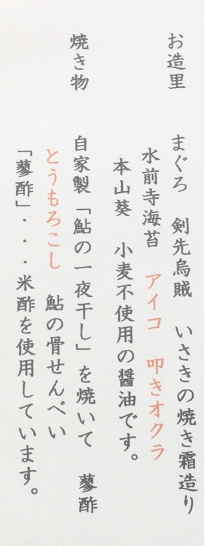 お造里　まぐろ　剣先烏賊　いさきの焼き霜造り
水前寺海苔　アイコ　叩きオクラ
本山葵　小麦不使用の醤油です。
焼き物　自家製「鮎の一夜干し」を焼いて　蓼酢
とうもろこし　鮎の骨せんべい
「蓼酢」・・・米酢を使用しています。